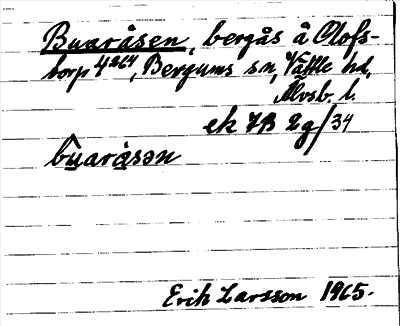 Buaråsen, bergås å Olofs-
torp 4²⁶⁴, Bergums sn, Vättle hd,
Älvsb. l.
ek 7B 2g/34
buaråsən
Erik Larsson 1965.